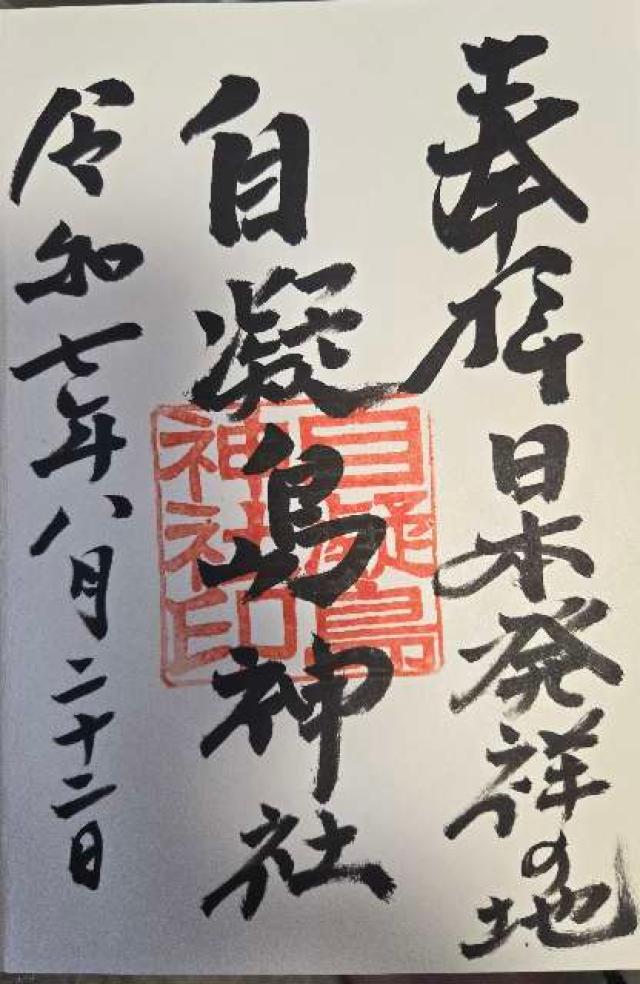 奉拝 日本発祥の地
自凝島神社
自凝島
神社印
令和七年八月二十二日